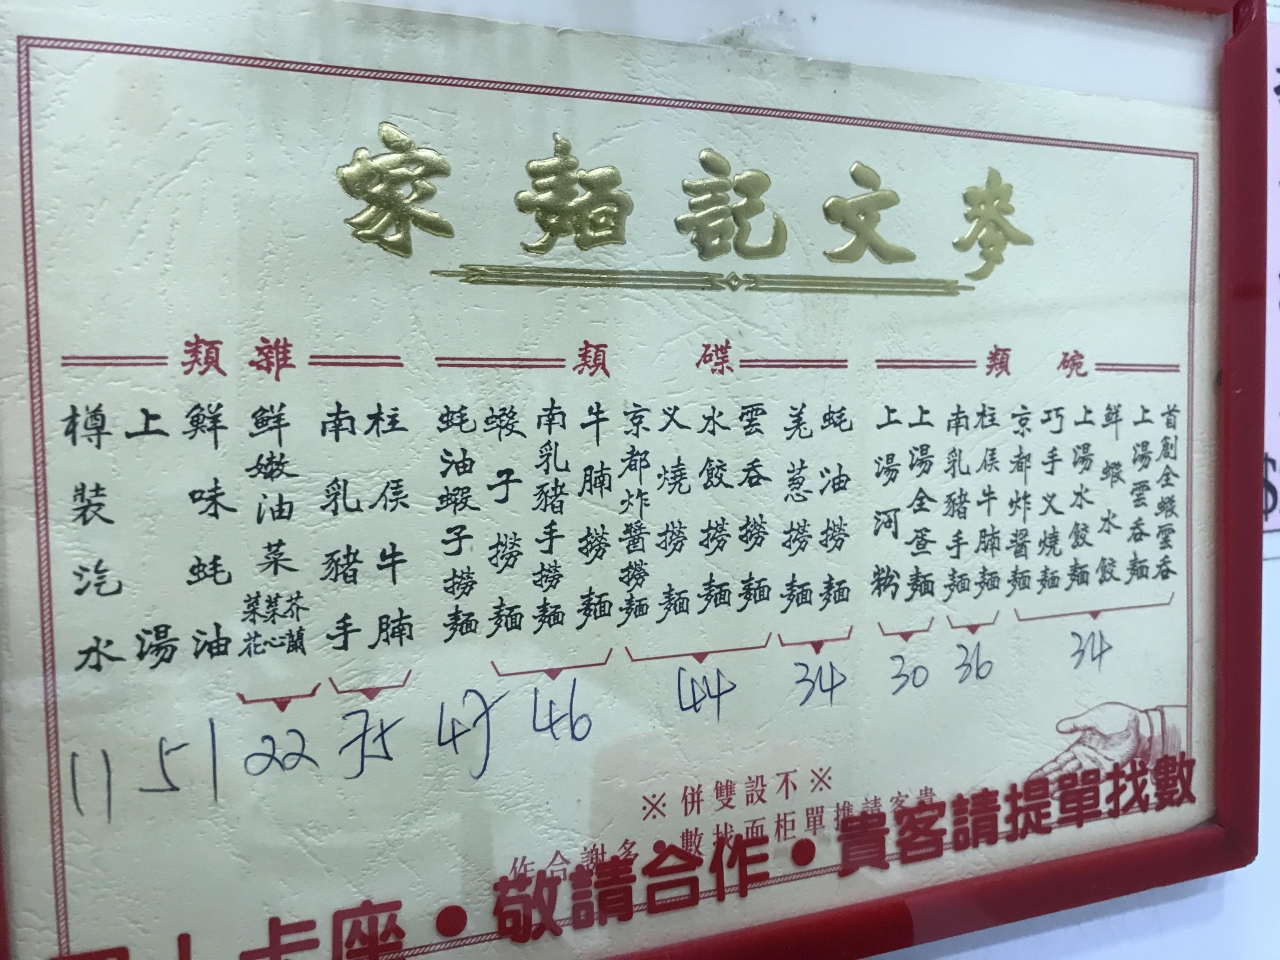 麥文記麵家
碗類
首創全蝦雲吞
上湯雲吞麵
鮮蝦水餃
上湯水餃麵
巧手义燒麵
京都炸醬麵
34
柱侯牛腩麵
南乳豬手麵
36
上湯全疍麵
上湯河粉
30
碟類
蚝油撈麵
羗葱撈麵
34
雲吞撈麵
水餃撈麵
义燒撈麵
京都炸醬撈麵
44
牛腩撈麵
南乳豬手撈麵
蝦子撈麵
46
蚝油蝦子撈麵
47
雜類
柱侯牛腩
南乳豬手
75
鮮嫩油菜
芥蘭
菜心
菜花
22
鮮味蚝油
1
上湯
5
樽裝汽水
11
※不設雙併※
貴客請携單柜面找數 多謝合作
卡座・敬請合作・貴客請提單找數